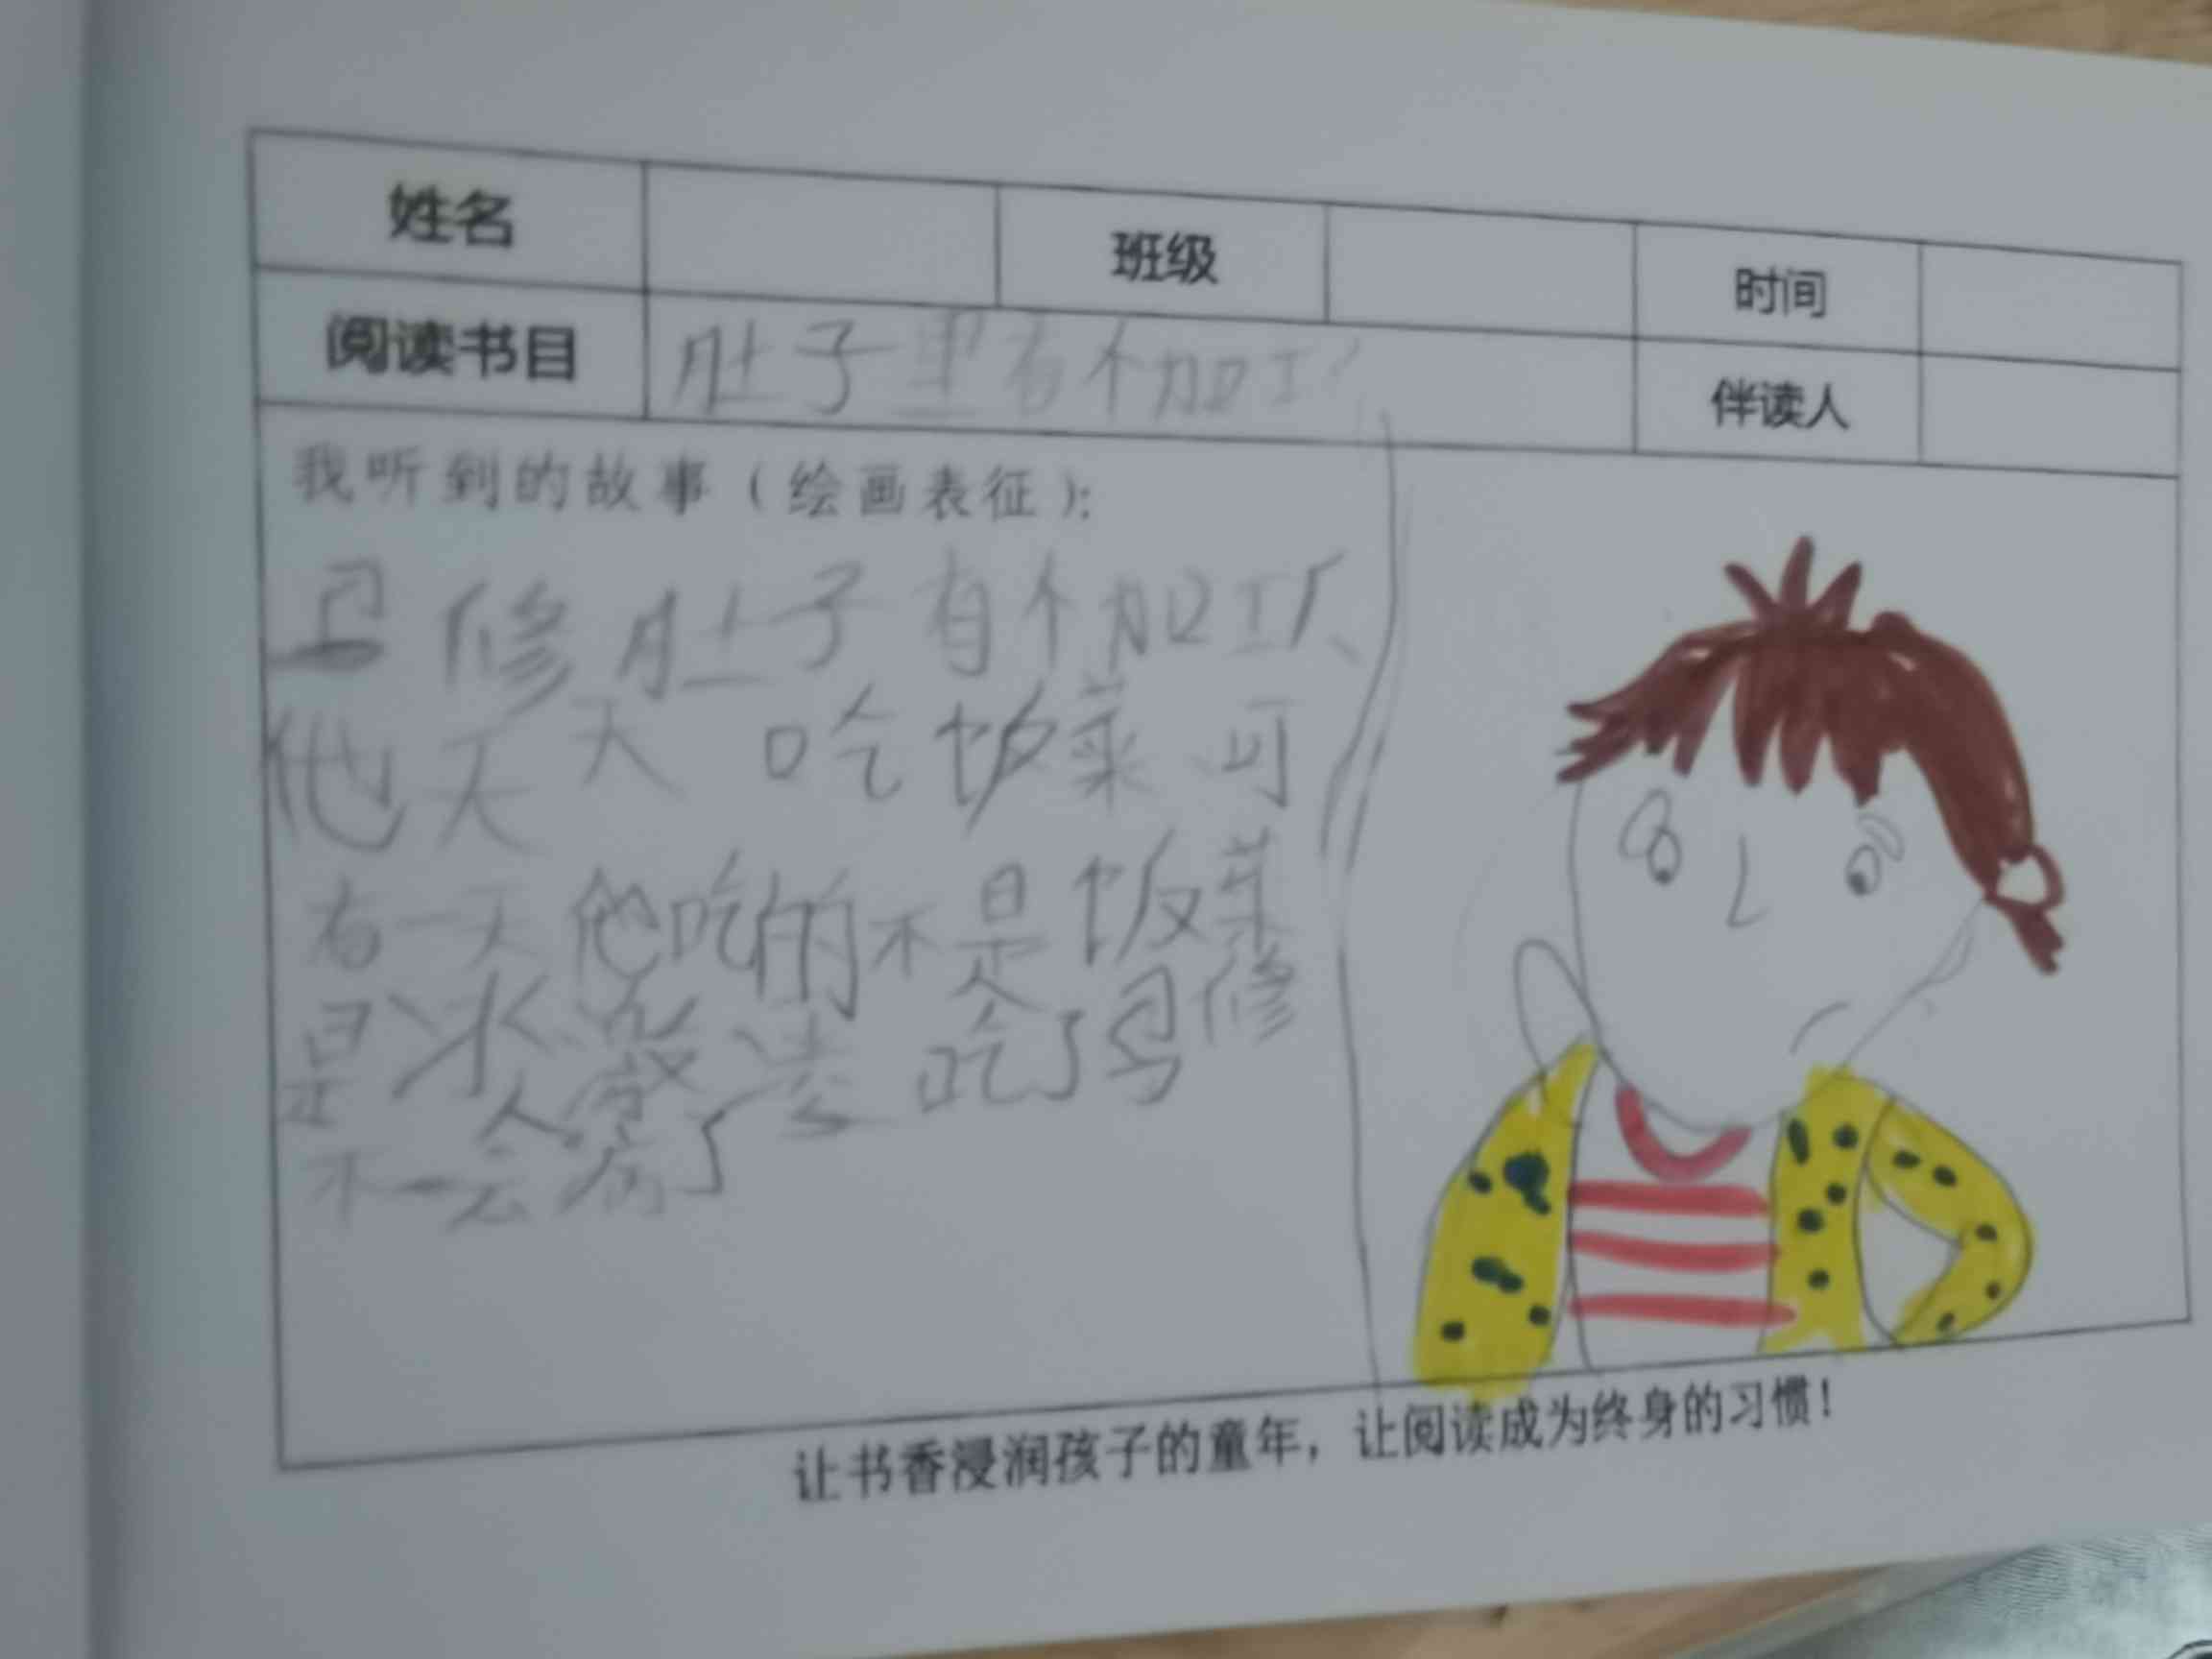 姓名 班级 时间
阅读书目 肚子里有个加工厂 伴读人
我听到的故事（绘画表征）：
修 肚子有个加工厂
他天天 吃饭菜 可
有一天他吃的不是饭菜
是 吃了 修
不一会病了
让书香浸润孩子的童年，让阅读成为终身的习惯！